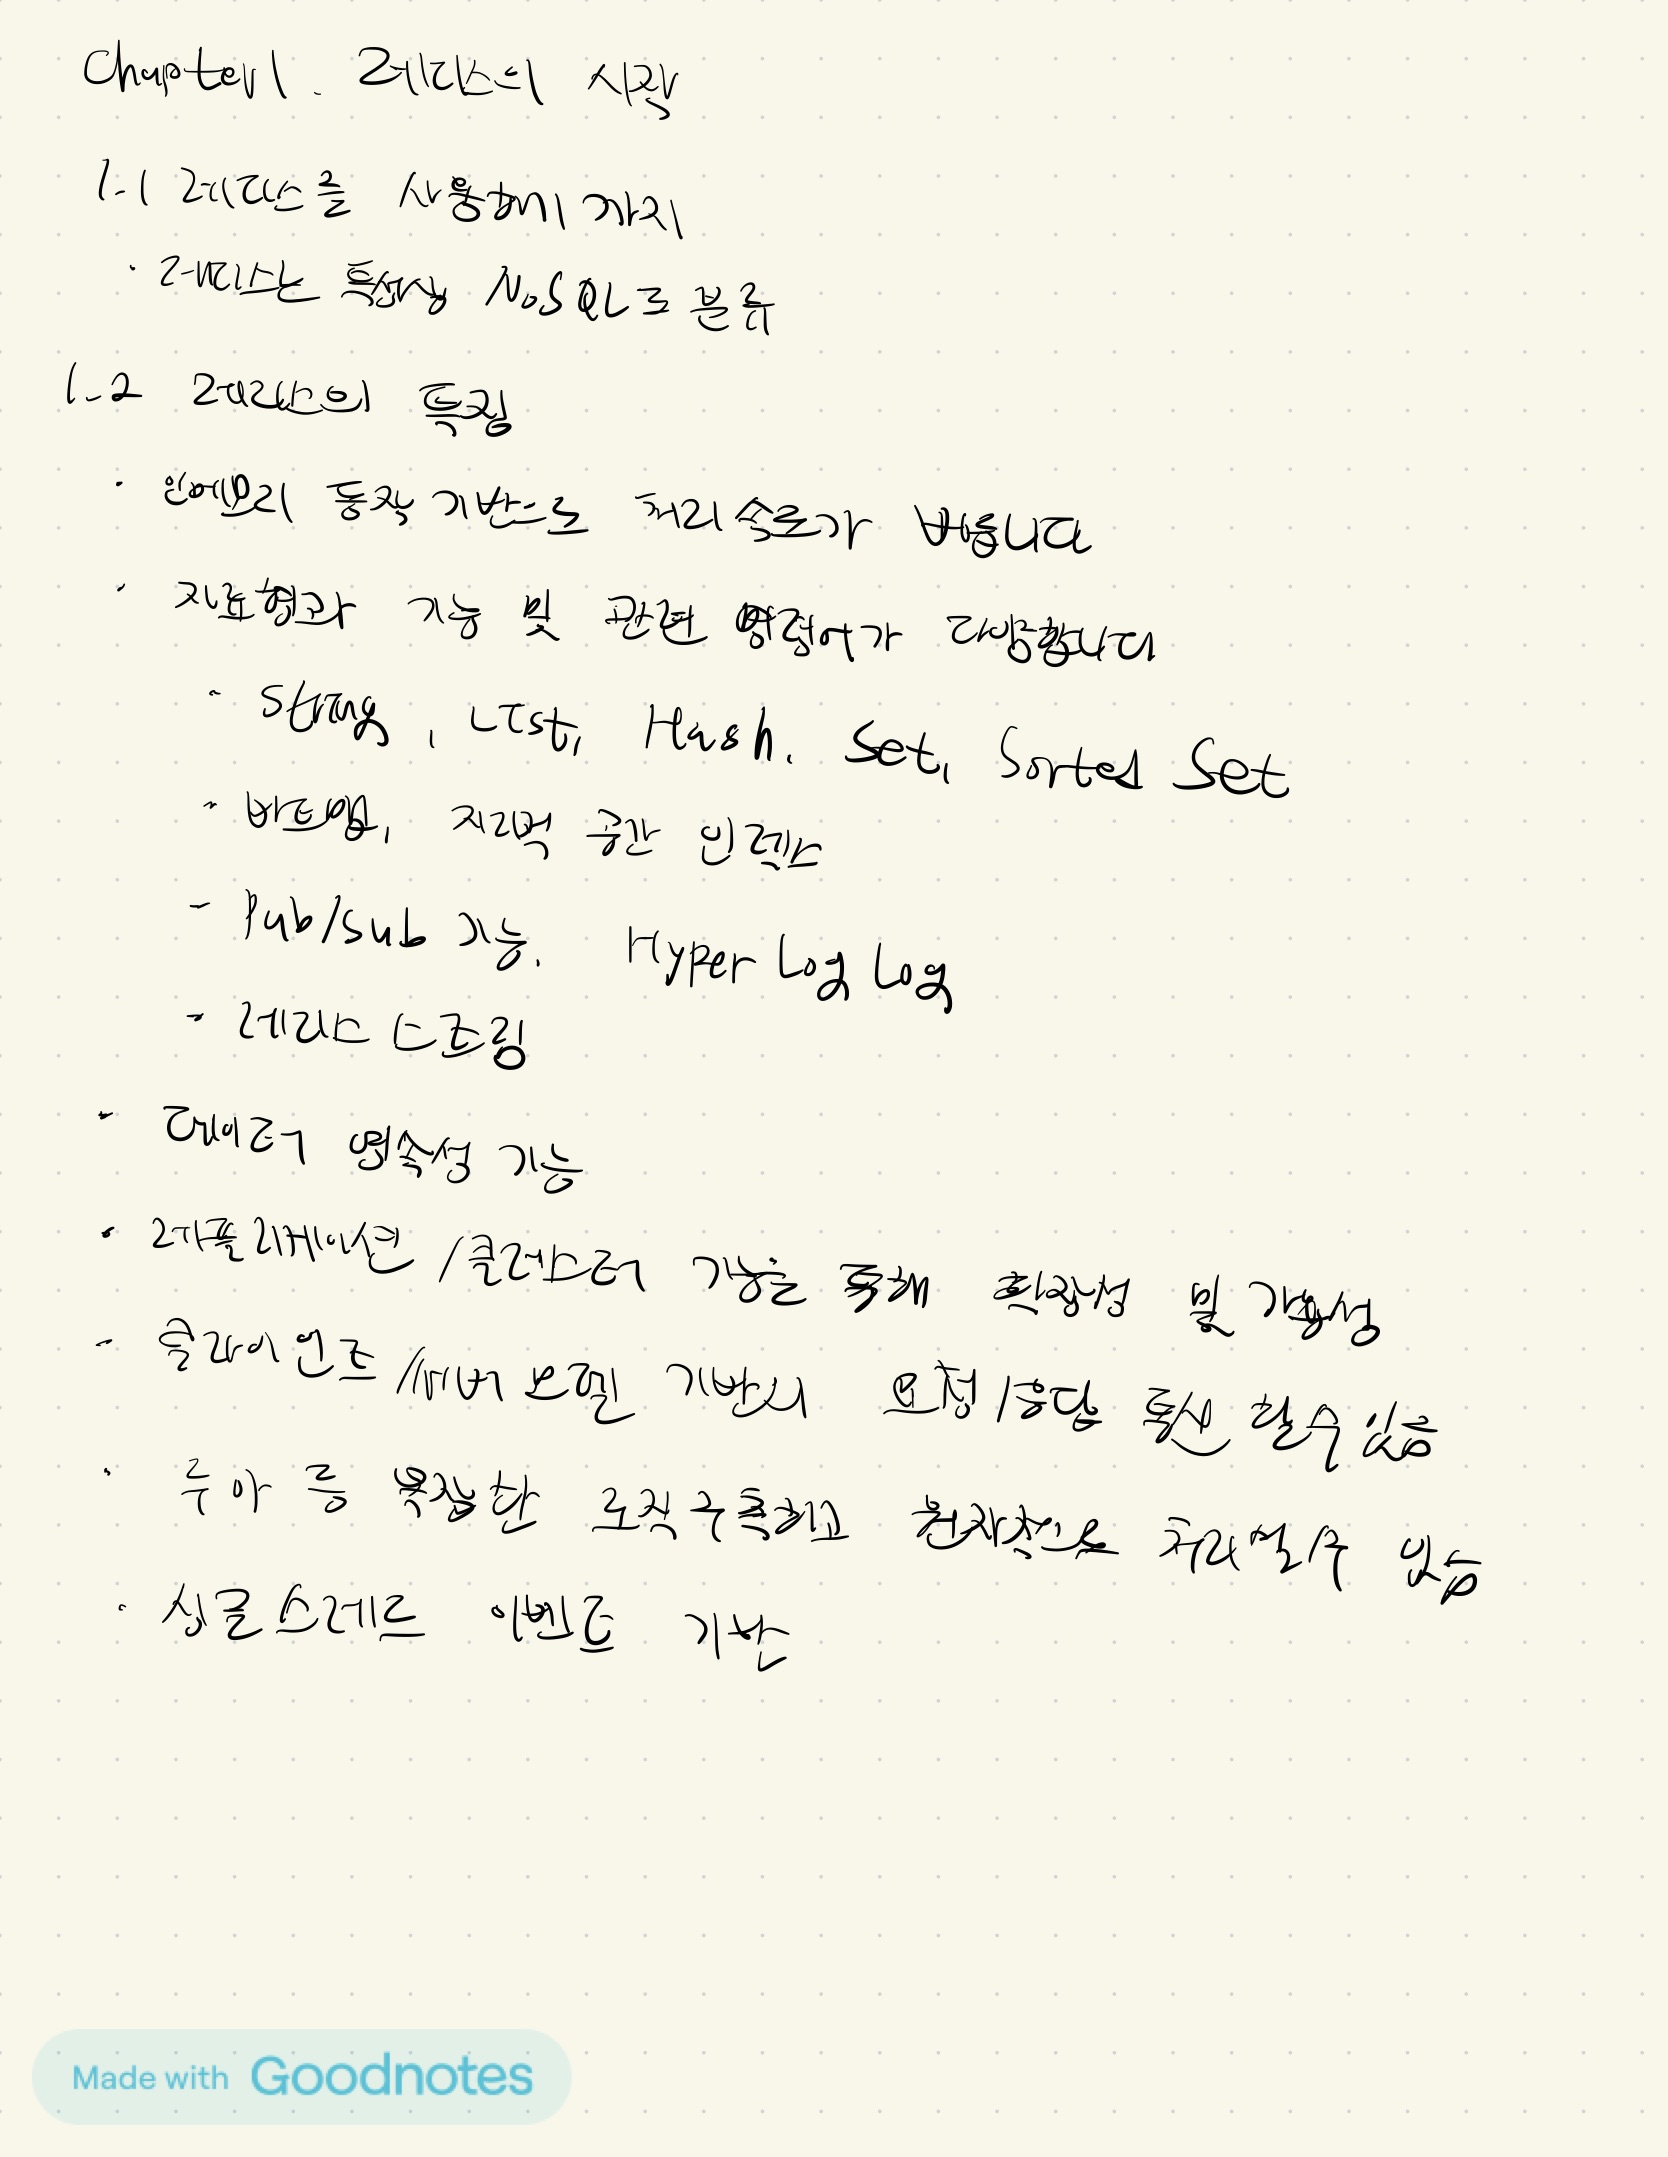 Chapter 1. 레디스의 시작
1-1 레디스를 사용하기까지
· 레디스는 특성상 NoSQL로 분류
1-2 레디스의 특징
· 인메모리 동작 기반으로 처리 속도가 빠릅니다
· 자료형과 기능 및 관련 명령어가 다양합니다
- String, List, Hash, Set, Sorted Set
- 비트맵, 지리적 공간 인덱스
- Pub/Sub 기능, Hyper Log Log
- 레디스 스트림
· 데이터 영속성 기능
· 레플리케이션/클러스터 기능을 통해 확장성 및 가용성
- 클라이언트/서버 모델 기반 요청/응답 통신 할 수 있음
· 루아 등 복잡한 로직 구축하고 원자적으로 처리할 수 있음
· 싱글 스레드 이벤트 기반
Made with Goodnotes